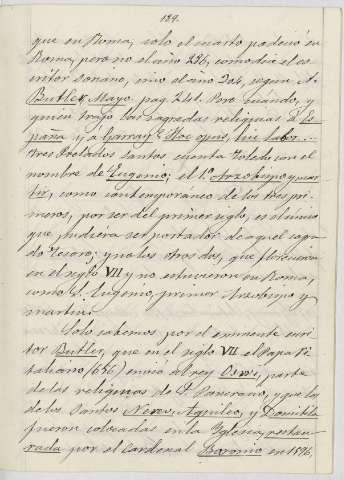 189.
que en Roma, solo el cuarto padeció en
Roma, pero no el año 286, como dice el es
critor soriano, sino el año 304, segun A.
Butler, Mayo, pag. 241. Pero cuándo, y
quien trajo las sagradas reliquias á Es
paña y á Garray? Hoc opus, hic labor....
Tres Prelados Santos cuenta Toledo con el
nombre de Eugenio; el 1º Arzobispo y mar
tir, como contemporáneo de los tres pri
meros, por ser del primer siglo, es el único
que pudiera ser portador de aquel sagra
do tesoro; y no los otros dos, que florecieron
en el siglo VII y no estuvieron en Roma,
como S. Eugenio, primer Arzobispo y
martir.
Solo sabemos por el eminente escri
tor Butler, que en el siglo VII el Papa Vi
taliano (656) envió al rey Oswi, parte
de las reliquias de S. Pancracio, y que las
de los Santos Nereo, Aquileo, y Domitila
fueron colocadas en la Iglesia, restau
rada por el Cardenal Baronio en 1596,